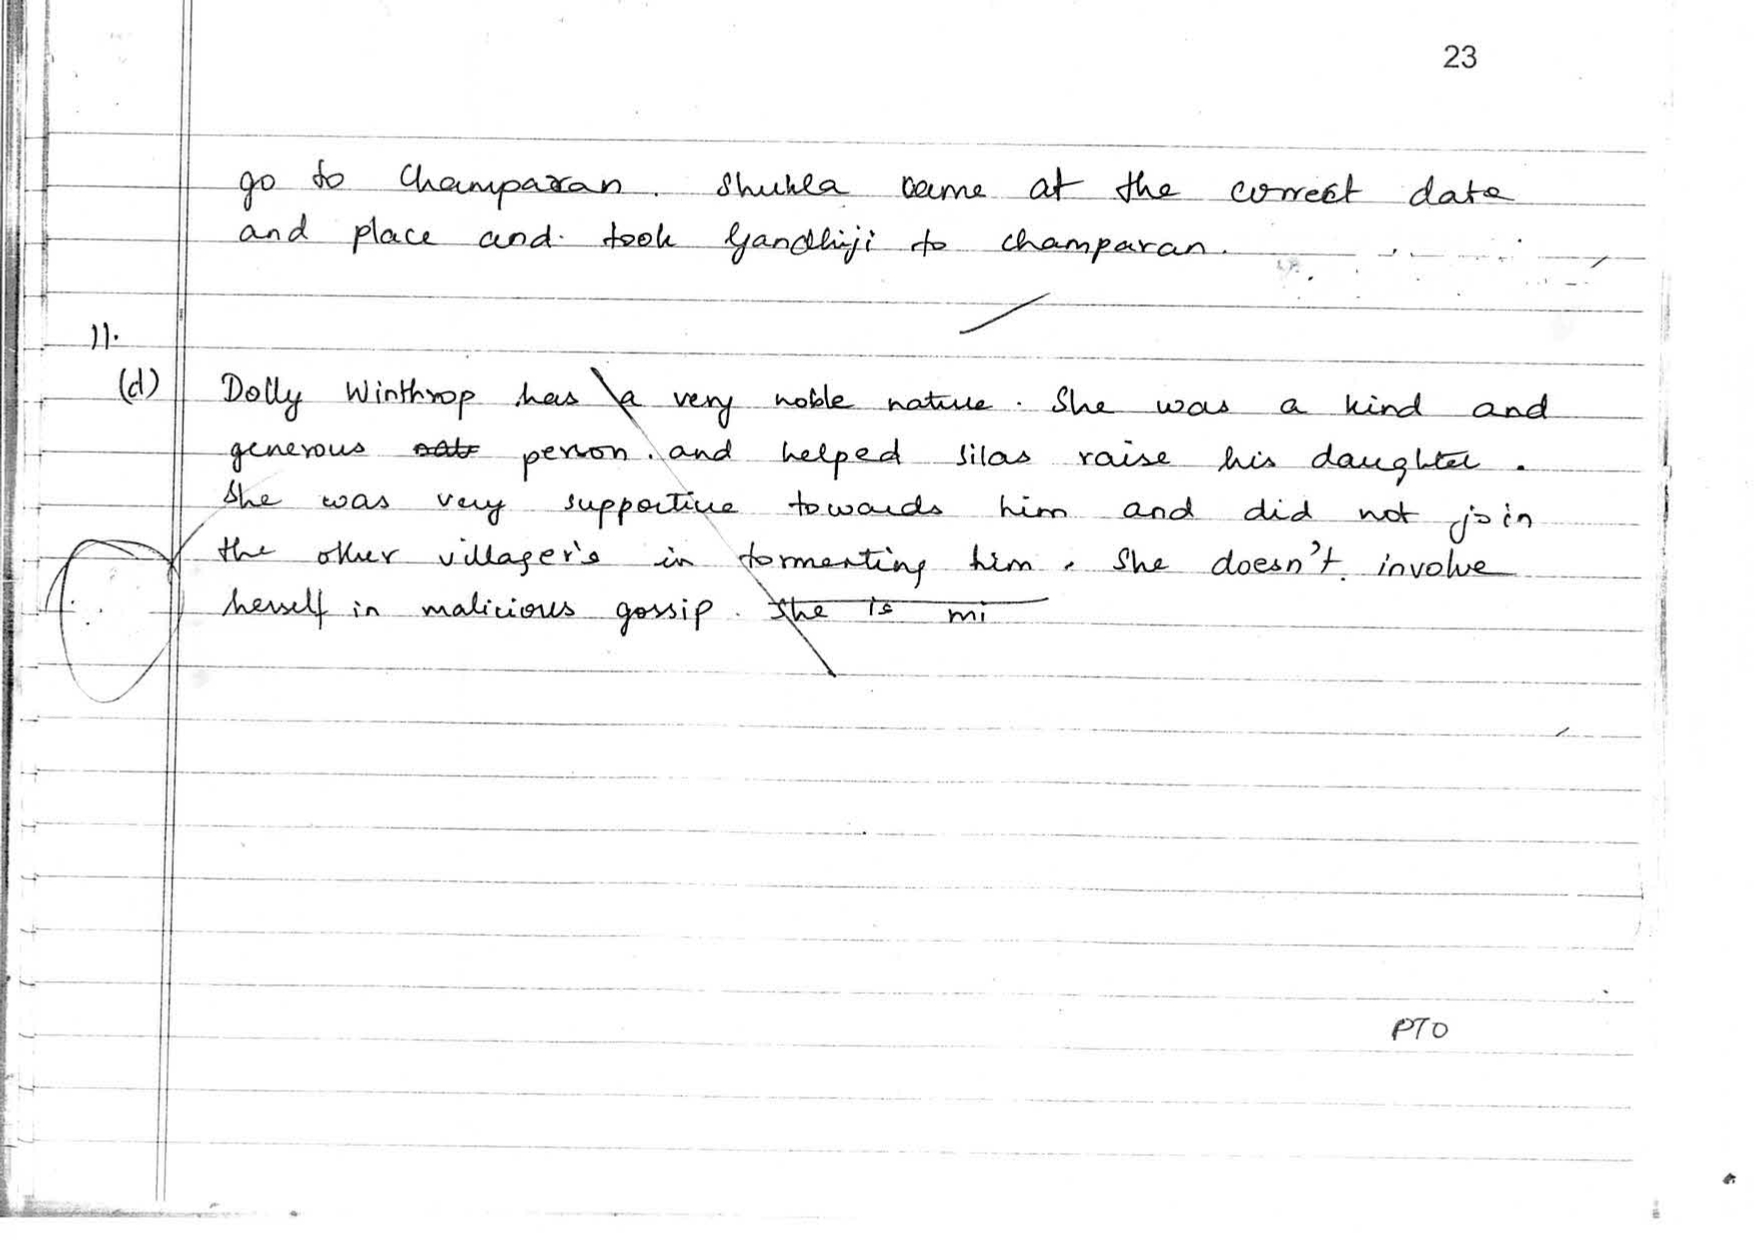 23
go to Champaran. Shukla came at the correct date
and place and took Gandhiji to champaran.
11.
(d) Dolly Winthrop has a very noble nature. She was a kind and
generous person. and helped silas raise his daughter.
She was very supportive towards him and did not join
the other villager's in tormenting him. She doesn't involve
herself in malicious gossip. She is mi
PTO